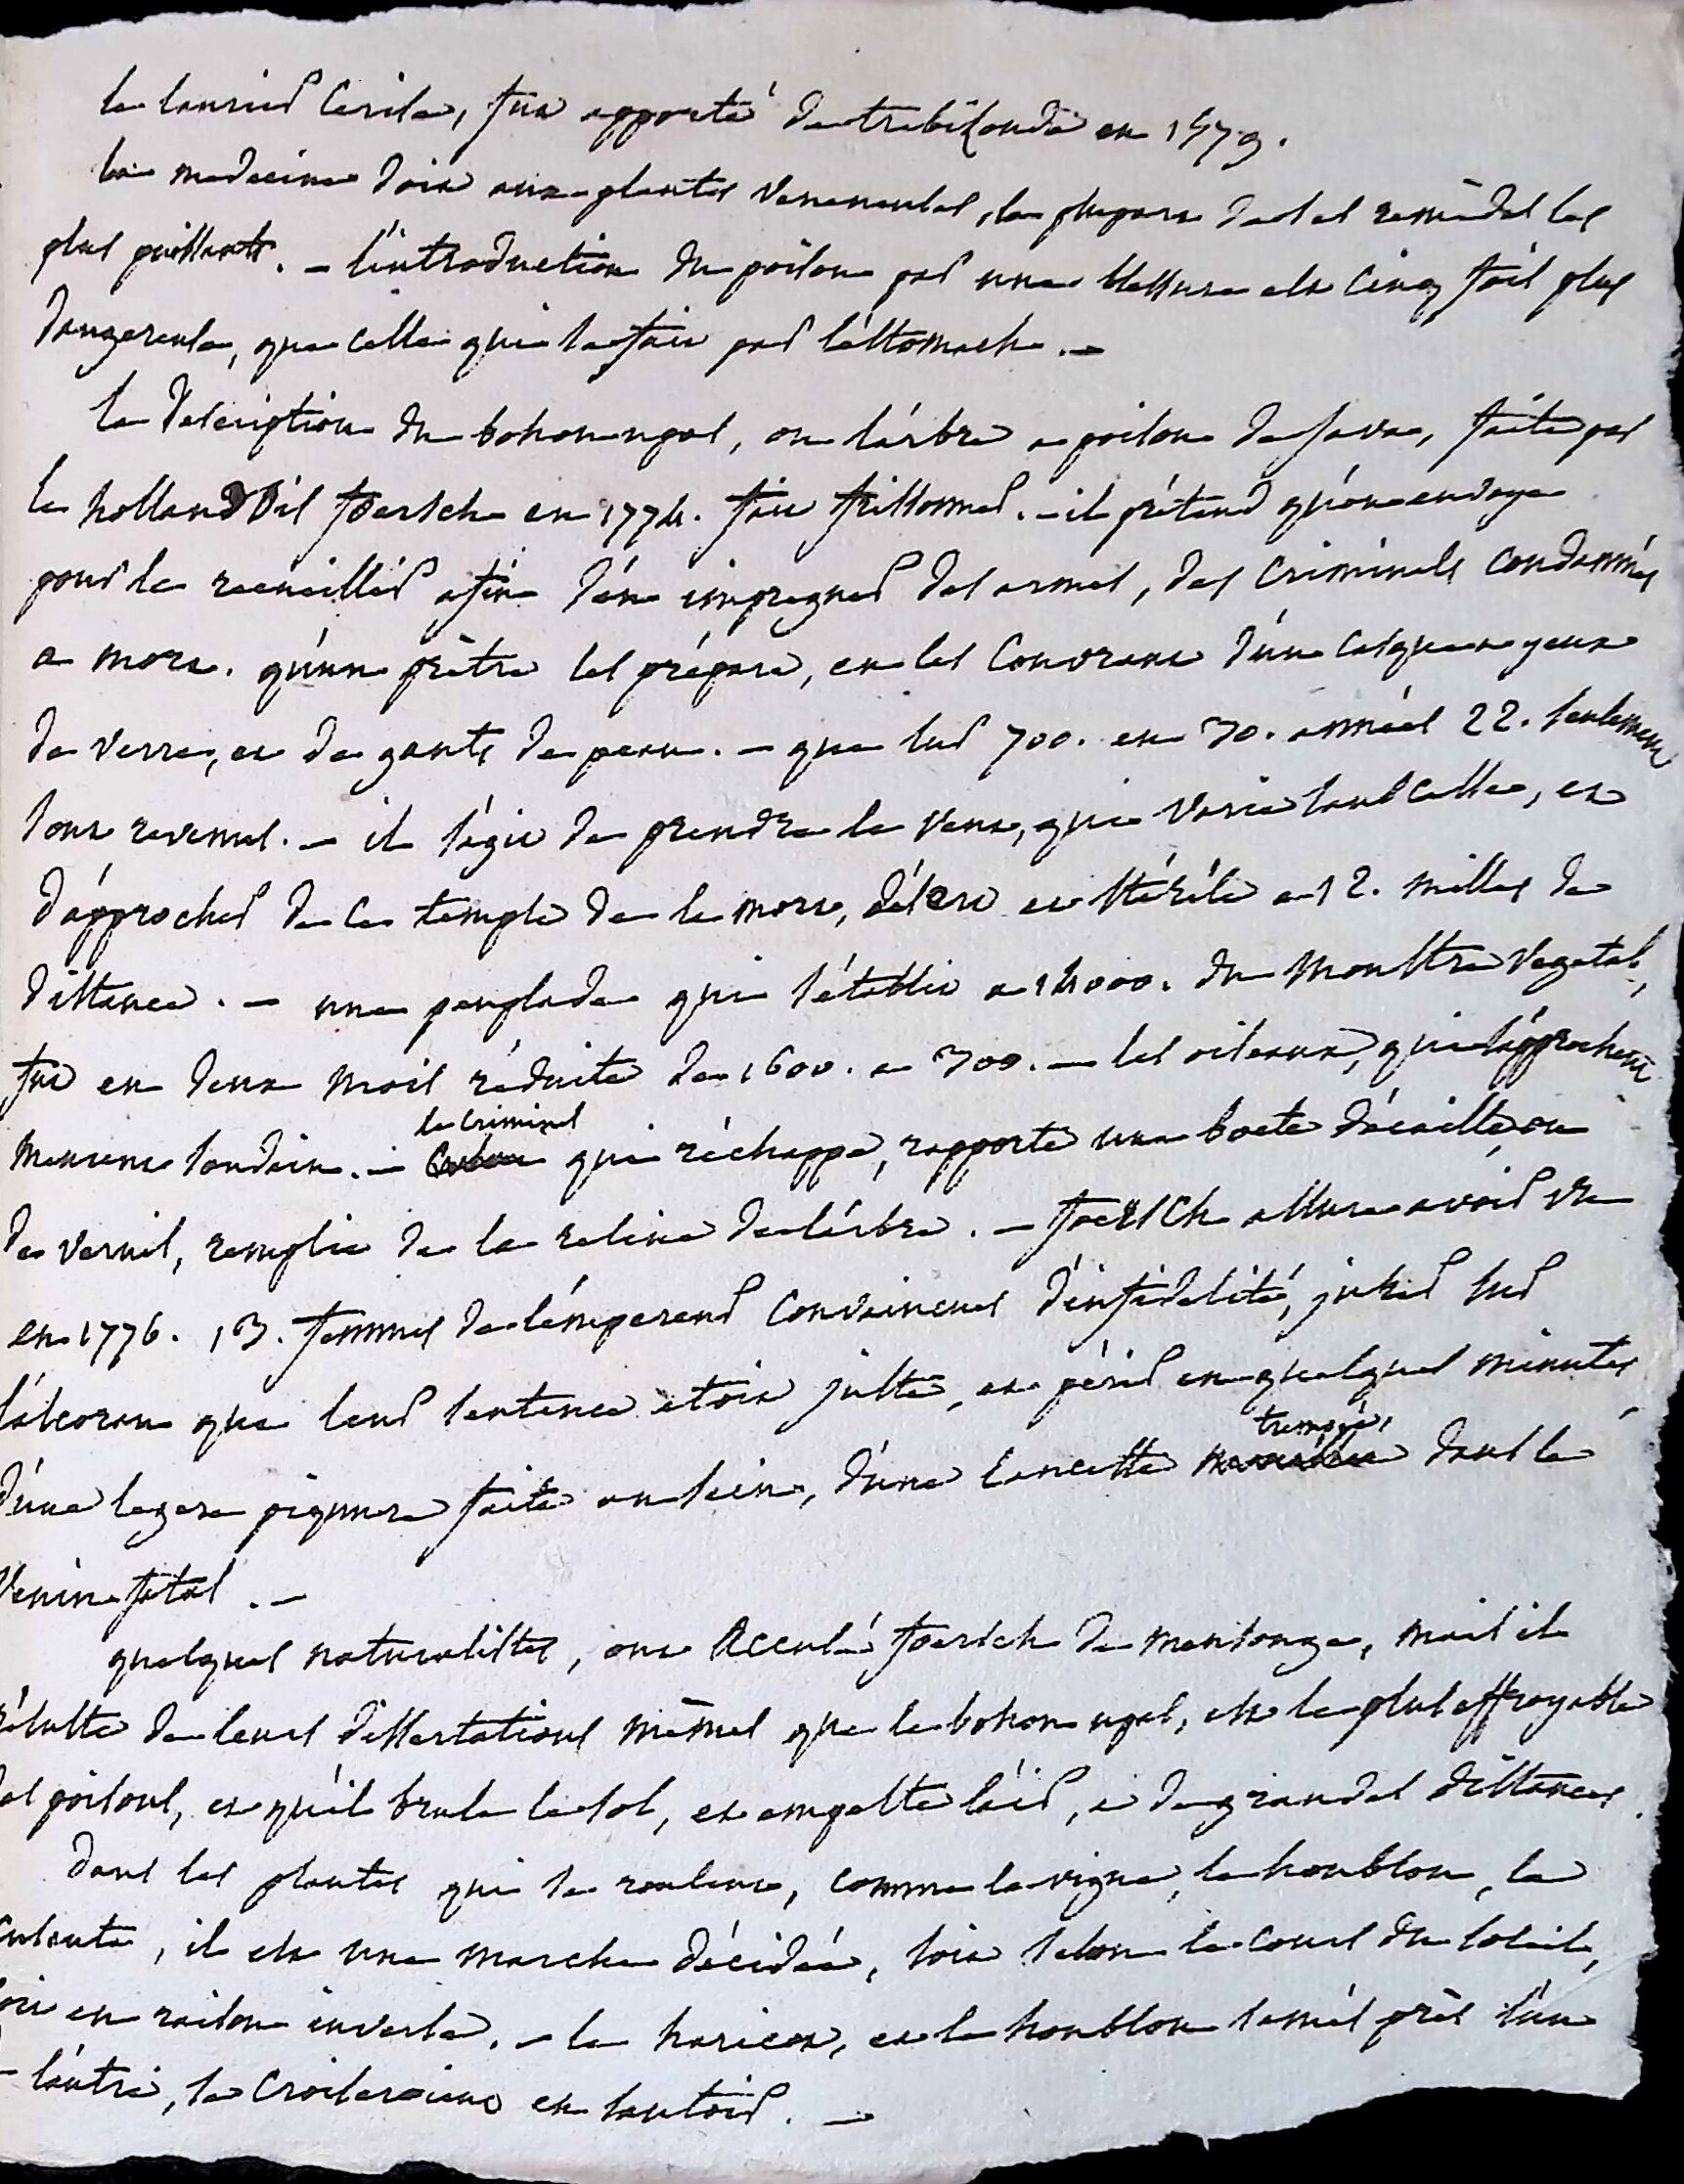 le laurier Cerise, fut apporté de trebizonde en 1579.
la medecine doit aux plantes veneneuses, la plupart de ses remèdes les
plus puissants. - l'introduction du poison par une blessure est cinq fois plus
dangereuse, que celle qui se fait par l'éstomach. -
la description du bohon-upas, ou l'arbre a poison de Java, faite par
le hollandois foersch en 1774. fait frissonner. - il prétend qu'on envoye
pour le recueillir afin d'en impregner des armes, des Criminels condamnés
a mort. qu'un prêtre les prépare, en les Couvrant d'un casque a yeux
de verre, et de gants de peau. - que sur 700. en 30. années 22. seulement
sont revenus. - il s'agit de prendre le vent, qui varie sans cesse, et
d'approcher de ce temple de la mort, désert et stérile a 12. milles de
distance. - une peuplade qui s'établit a 14000. du monstre vegetal,
fut en deux mois réduite de 1600. a 300. - les oiseaux, qui s'approchent
meurent soudain. - le criminel qui réchappe, rapporte une boete d'écaille, ou
de vernis, remplie de la resine de l'arbre. - foersch assure avoir vu
en 1776. 13. femmes de l'émpereur convaincues d'infidelité, jurer sur
l'alcoran que leur sentence étoit juste, et périr en quelques minutes
d'une legere piqure faite au sein, d'une lancette trempée, dans le
venin fatal. -
quelques naturalistes, ont accusé foersch de mensonge, mais il
résulte de leurs dissertations mêmes que le bohon upas, est le plus effroyable
des poisons, et qu'il brule le sol, et empeste l'air, a de grandes distances.
dans les plantes qui se roulent, comme la vigne, le houblon, la
Cuscute, il est une marche décidée, soit selon le cours du soleil,
soit en raison inverse. - le haricot, et le houblon semés près l'un
l'autre, se croiseroient en sautoir. -